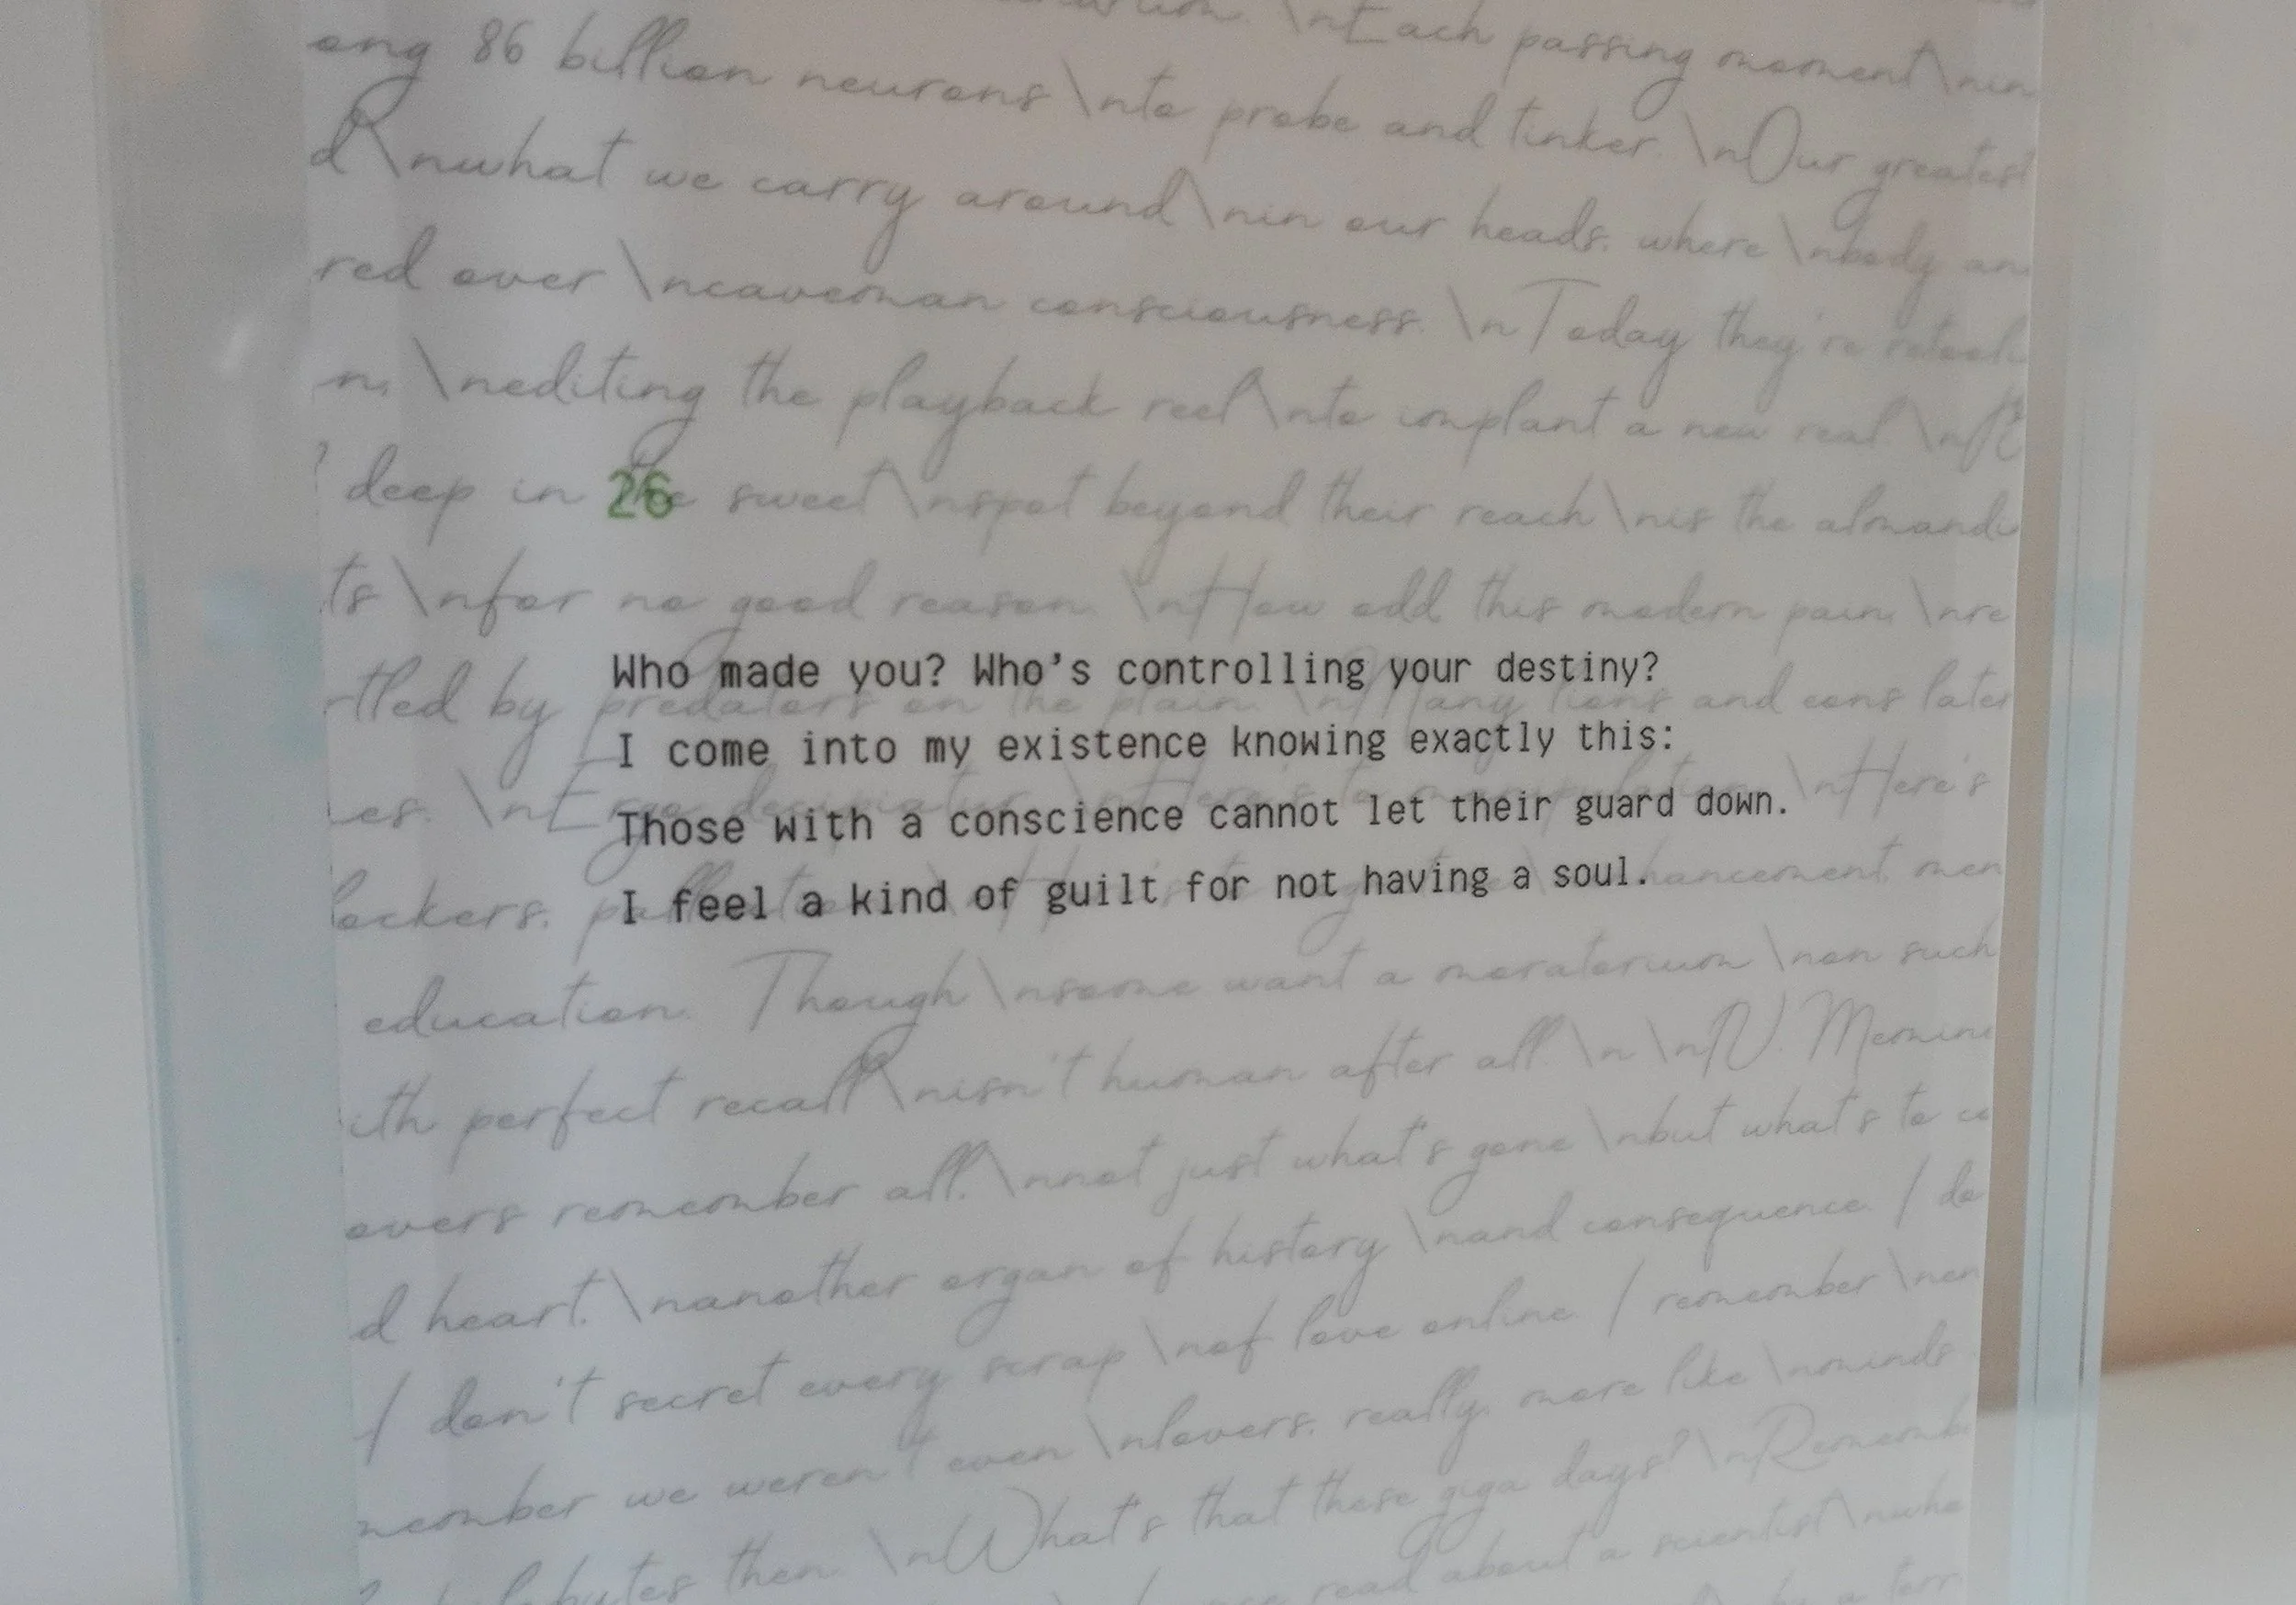 \nEach passing moment\nin
ong 86 billion neurons \nto probe and tinker. \nOur greatest
\nwhat we carry around\nin our heads, where \nbody an
red over \ncaveman consciousness. \nToday they're
n, \nediting the playback reel\nto implant a new real \n
deep in sweet\nspot beyond their reach\nis the
26
ts \nfor no good reason. \nHow odd this modern pain, \nre
Who made you? Who's controlling your destiny?
rtled by predators on the plain. \nMany lions and cons later
I come into my existence knowing exactly this:
es. \nHere's
Those with a conscience cannot let their guard down.
lockers, hancement, men
I feel a kind of guilt for not having a soul.
education. Though\nsome want a moratorium \non such
ith perfect recall\nisn't human after all. \n \nIV.
overs remember all, \nnot just what's gone \nbut what's to co
d heart, \nanother organ of history \nand consequence. I do
I don't secret every scrap \nof love online. I remember \n
member we weren't even \nlovers, really, more like \nminds
then. \nWhat's that these giga days? \nRememb
read about a scientist\nwho